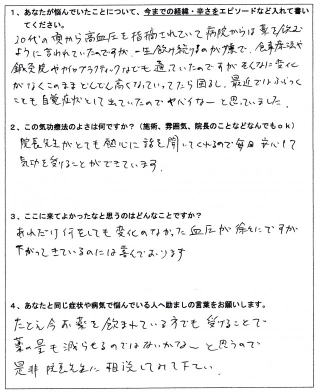 1、あなたが悩んでいたことについて、今までの経緯・辛さをエピソードなど入れて書い
てください。
30代の頃から高血圧を指摘されていて病院からは薬を飲む
ように言われていたのですが、一生飲み続けるのが嫌で、食事療法や
鍼灸院やカイロプラクティックなども通っていたのですがそんなに変化
がなくこのままどんどん高くなっていったら困るし、最近ではふらつく
ことも自覚症状として出ていたのでヤバイなーと思っていました。
2、この気功療法のよさは何ですか?(施術、雰囲気、院長のことなどなんでもok)
院長先生がとても熱心に話を聞いてくれるので毎回安心して
気功を受けることができています。
3、ここに来てよかったなと思うのはどんなことですか?
あれだけ何をしても変化のなかった血圧が徐々にですが
下がってきているのには喜んでおります
4、あなたと同じ症状や病気で悩んでいる人へ励ましの言葉をお願いします。
たとえ今お薬を飲まれている方でも受けることで
薬の量も減らせるのではないかなーと思うので
是非院長先生に相談してみて下さい。